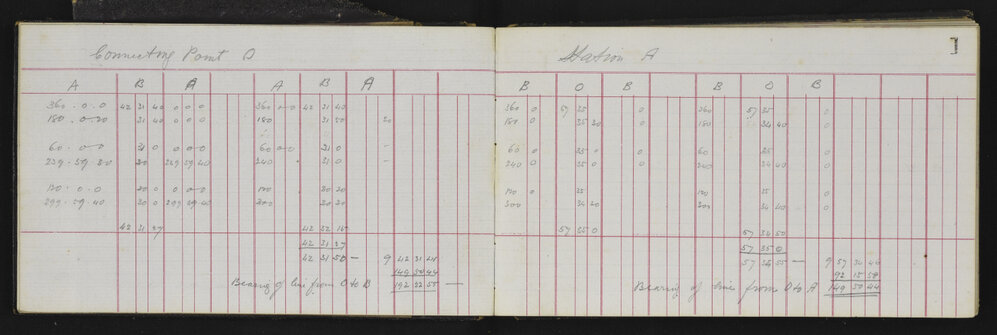 Connecting Point O
A B A A B A
360 . 0 . 0 42 31 40 0 0 0 360 0 0 42 31 40
180 . 0 . 00 31 40 0 0 0 180 31 50 20
60 . 0 . 0 31 0 0 0 0 60 0 0 31 0 -
239 . 59 . 80 30 239 59 40 240 31 0 -
120 . 0 . 0 30 0 0 0 0 120 30 20
299 . 59 . 40 30 0 299 59 40 300 30 20
42 31 27
42 31 27
42 31 50 — 9 42 31 44
149 50 44
Bearing of line from O to B 192 22 —
Station A
1
B O B B O B
360 0 57 35 0 360 57 35 0
180 0 35 20 0 180 34 40 0
60 0 35 0 0 60 35 0
240 0 35 0 0 240 34 40 0
120 0 35 120 35 0
300 34 20 300 34 40 0
57 35 0 57 34 50
57 35 0
57 34 55 — 9 57 34
92 15 58
Bearing of line from O to A 149 50 44